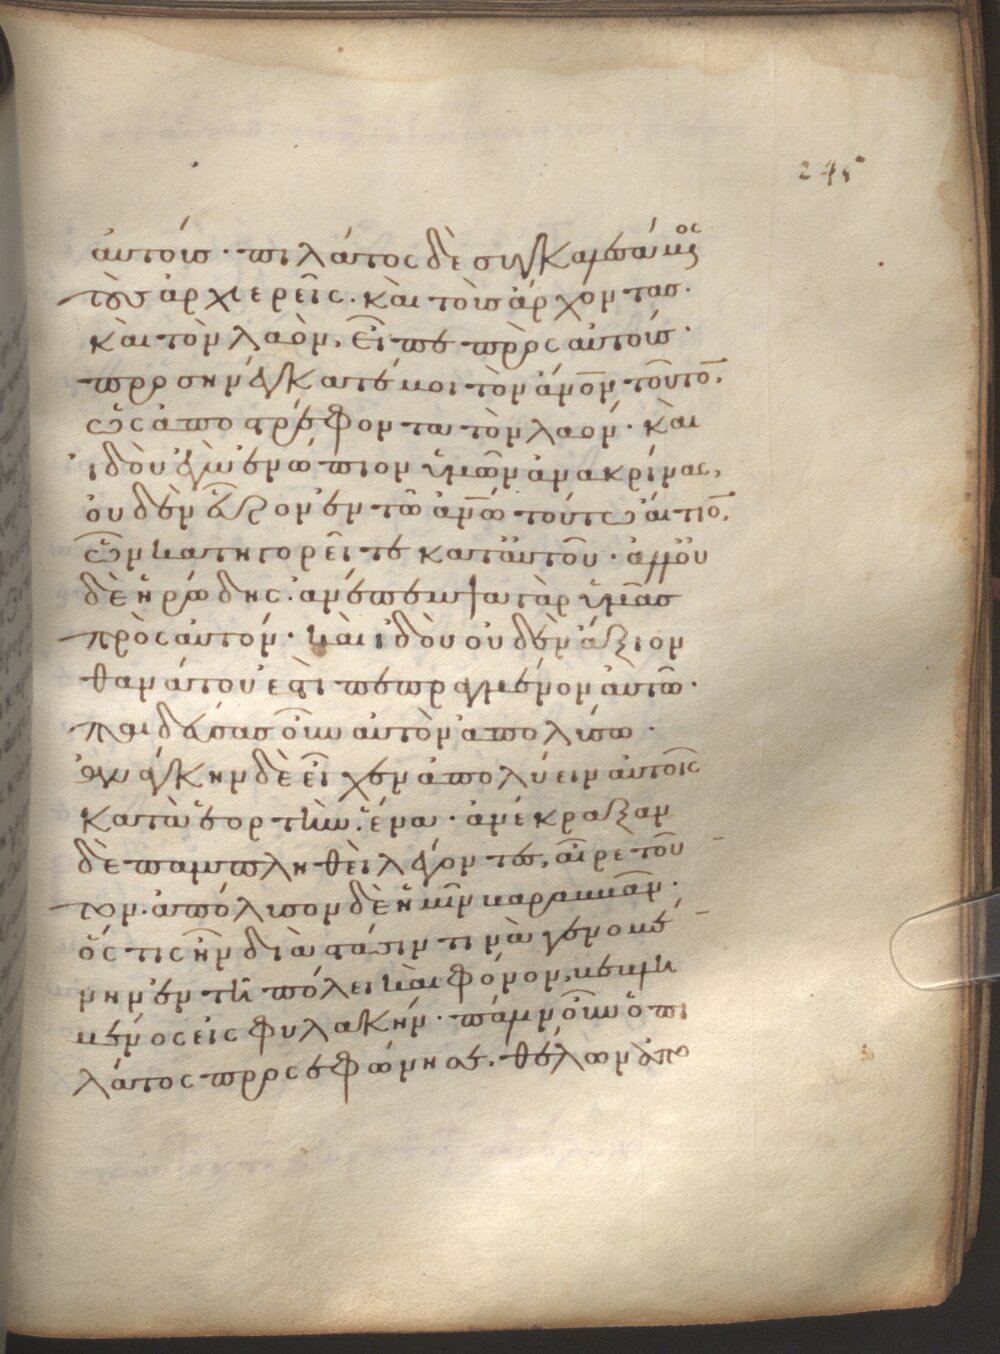 245
ἀυτοίσ · πιλάτος δὲ συγκαλεσάμενος
τοὺσ ἀρχιερεῖς · κὰι τοὶσ ἄρχόντασ ·
κὰι τὸν λαὸν, εἶπε πρὸς ἀυτοίσ ·
προσηνέγκατέ μοι τὸν ἄνον τοῦτον,
ὡς ἀποστρέφοντα τὸν λαόν · κὰι
ἰδὸυ ἐγὼ ἐνώπιον ὑμῶν ἀνακρίνας,
ὀυδὲν εὗρον ἐν τῶ ἀνω τούτω ἄιτιον,
ὧν κατηγορεῖτε κατ ἀυτοῦ · ἀλλ ὀυ
δὲ ἡρώδης · ἀνέπεμψα γὰρ ὑμᾶσ
πρὸς ἀυτόν · κὰι ἰδὸυ ὀυδὲν ἄξιον
θανάτου ἐστὶ πεπραγμένον ἀυτῶ ·
παιδέυσασ οὖν ἀυτὸν ἀπολύσω ·
ἀνάγκην δὲ εἶχεν ἀπολύειν ἀυτοῖς
κατὰ ἑορτὴν ἕνα · ἀνέκραξαν
δὲ παμπληθεὶ λέγοντες, αἶρε τοῦ
τον · ἀπόλυσον δὲ ἡμῖν βαραββᾶν ·
ὅς τις ἦν διὰ στάσιν τινὰ γενομέ
νην ἐν τῆ πόλει κὰι φόνον, βεβλη
μένος εἰς φυλακήν · πάλιν οὖν ὁ πι
λάτος προσεφώνησε, θέλων ἀπο